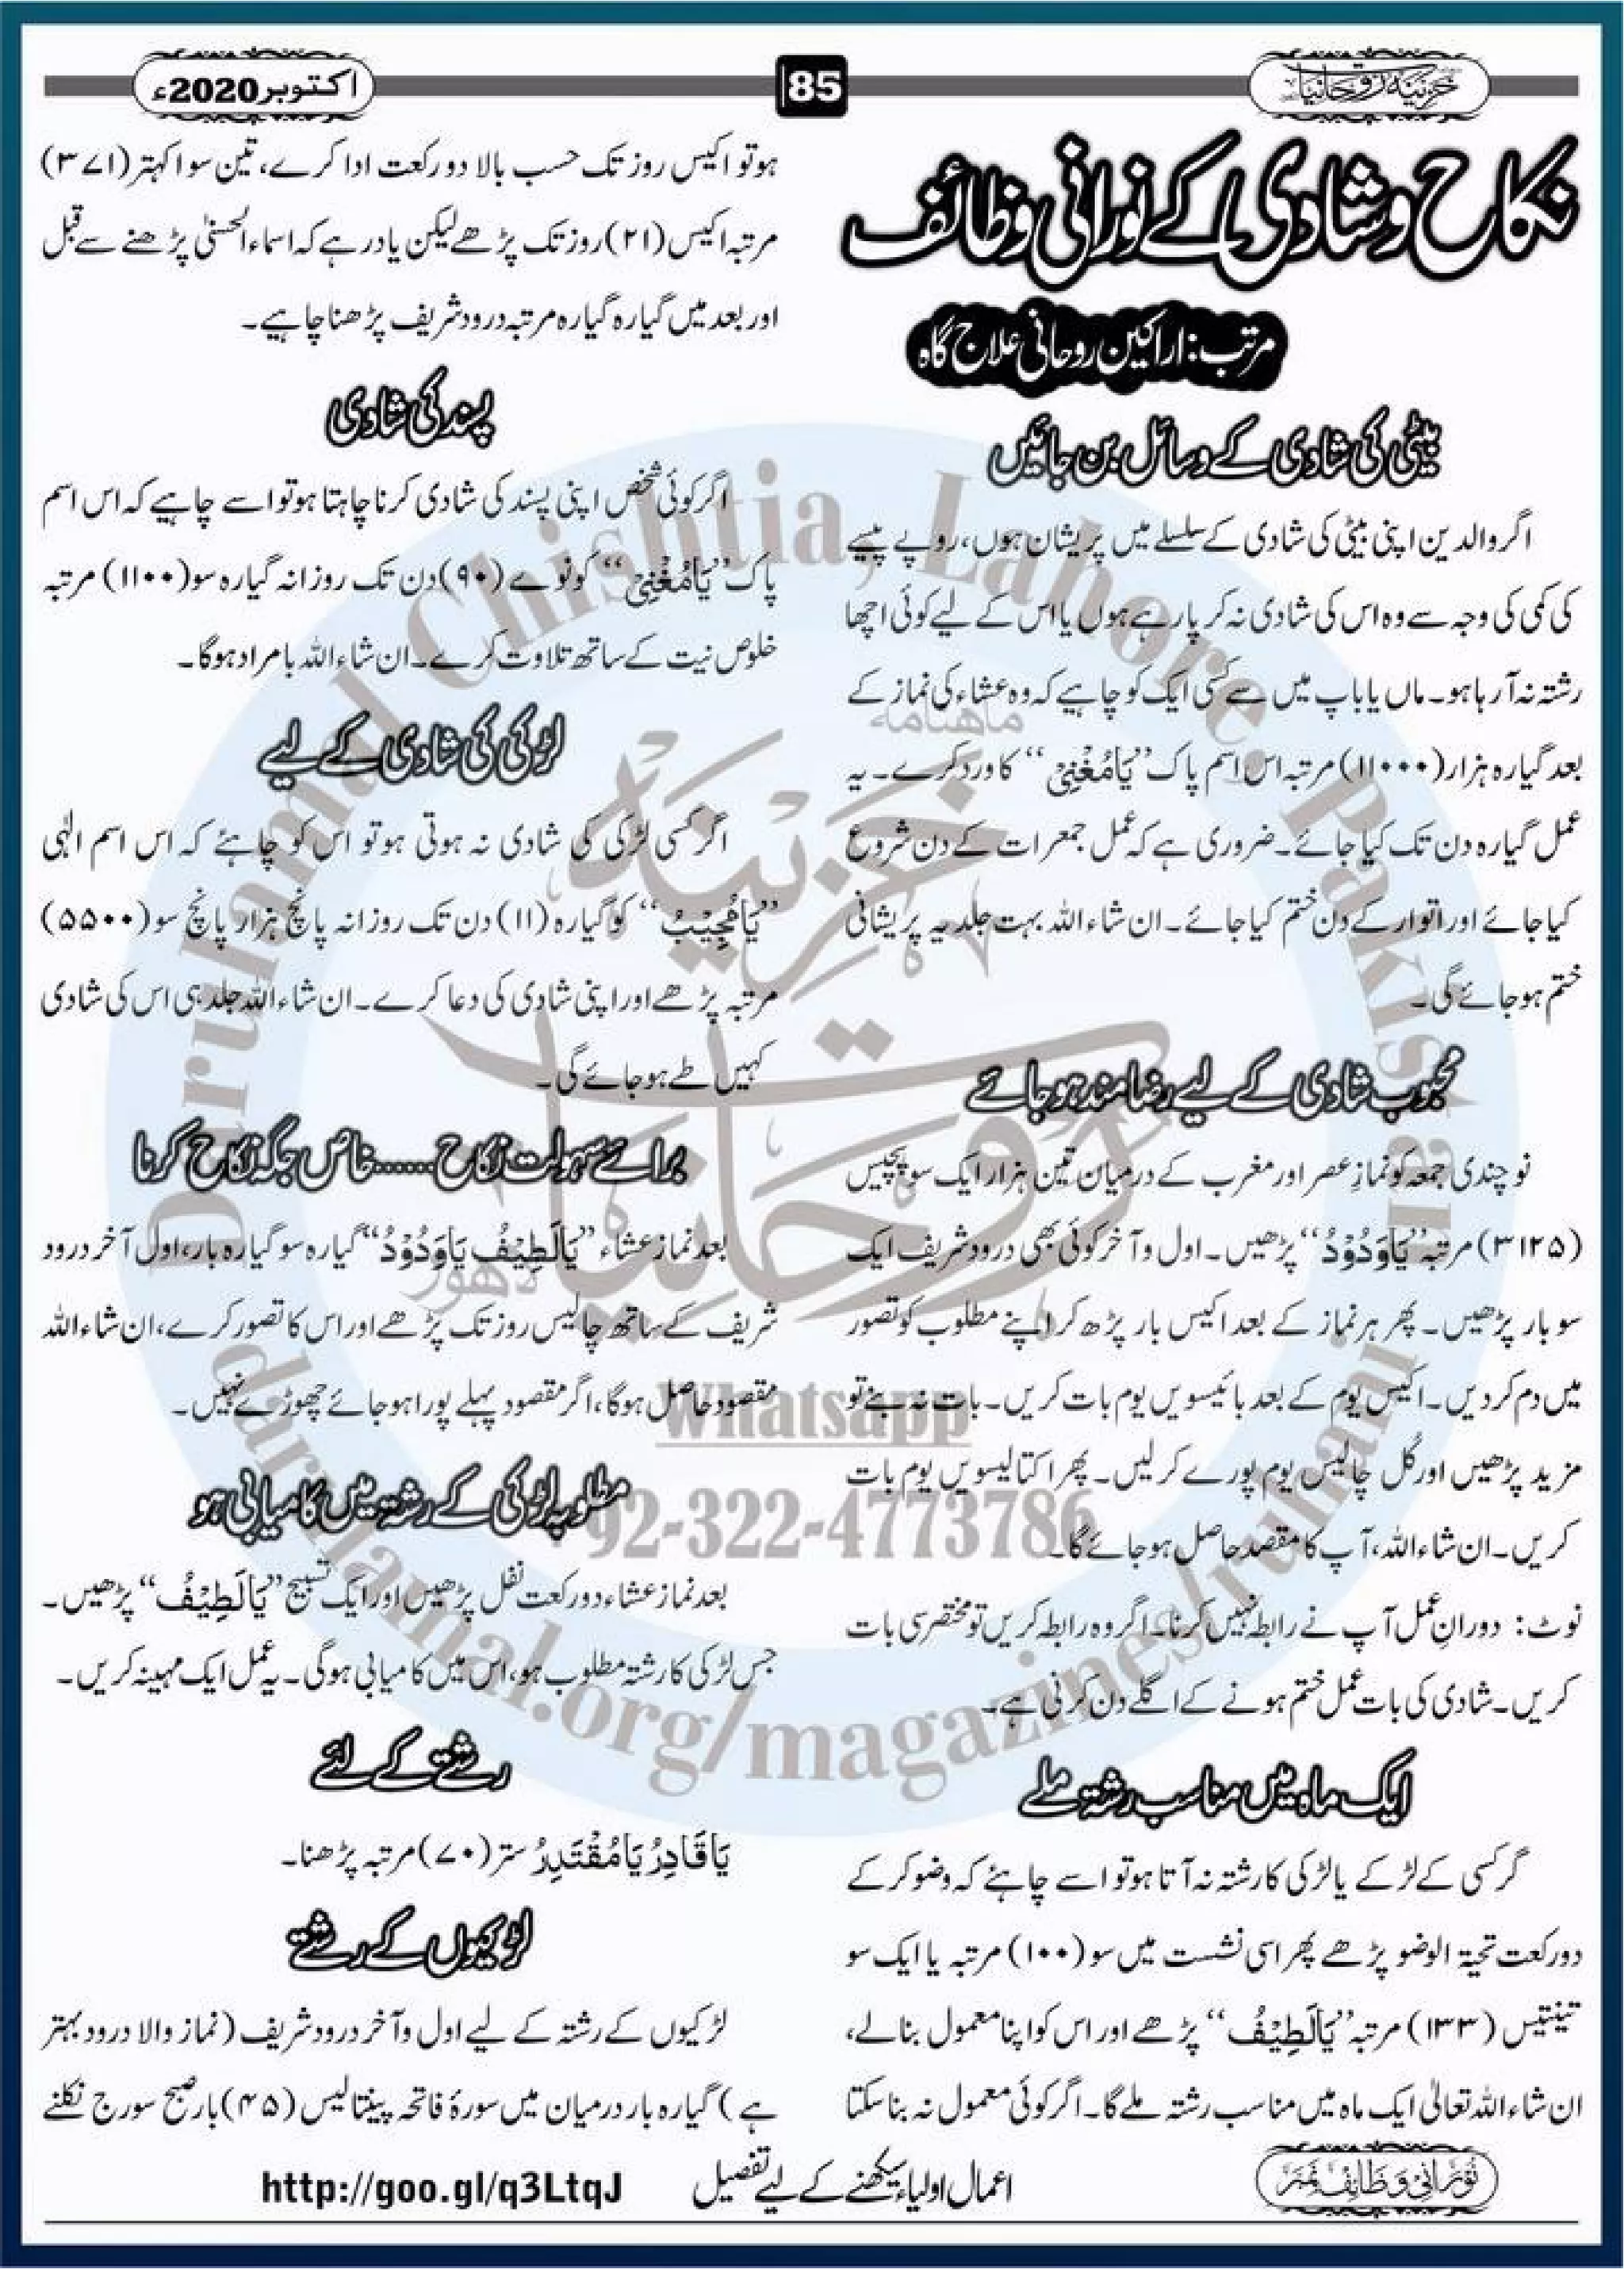 خزینۂ روحانیات
85
اکتوبر2020ء
نکاح و شادی کے نورانی وظائف
مرتب: اراکین روحانی علاج گاہ
بیٹی کی شادی کے وسائل بن جائیں
اگر والدین اپنی بیٹی کی شادی کے سلسلے میں پریشان ہوں، روپے پیسے
کی کمی کی وجہ سے وہ اس کی شادی نہ کر پا رہے ہوں یا اس کے لیے کوئی اچھا
رشتہ نہ آ رہا ہو۔ ماں یا باپ میں سے کسی ایک کو چاہیے کہ وہ عشاء کی نماز کے
بعد گیارہ ہزار (۱۱۰۰۰) مرتبہ اس اسم پاک ’’یَامُغْنِیْ‘‘ کا ورد کرے۔ یہ
عمل گیارہ دن تک کیا جائے۔ ضروری ہے کہ عمل جمعرات کے دن شروع
کیا جائے اور اتوار کے دن ختم کیا جائے۔ ان شاء اللہ بہت جلد یہ پریشانی
ختم ہو جائے گی۔
محبوب شادی کے لیے رضامند ہو جائے
نو چندی جمعہ کو نمازِ عصر اور مغرب کے درمیان تین ہزار ایک سو پچیس
(۳۱۲۵) مرتبہ ’’یَاوَدُوْدُ‘‘ پڑھیں۔ اول و آخر کوئی بھی درود شریف ایک
سو بار پڑھیں۔ پھر ہر نماز کے بعد اکیس بار پڑھ کر اپنے مطلوب کو تصور
میں دم کر دیں۔ اکیس یوم کے بعد بائیسویں یوم بات کریں۔ بات نہ بنے تو
مزید پڑھیں اور کُل چالیس یوم پورے کر لیں۔ پھر اکتالیسویں یوم بات
کریں۔ ان شاء اللہ، آپ کا مقصد حاصل ہو جائے گا۔
نوٹ: دورانِ عمل آپ نے رابطہ نہیں کرنا۔ اگر وہ رابطہ کریں تو مختصر سی بات
کریں۔ شادی کی بات عمل ختم ہونے کے اگلے دن کرنی ہے۔
ایک ماہ میں مناسب رشتہ ملے
گر کسی کے لڑکے یا لڑکی کا رشتہ نہ آتا ہو تو اسے چاہئے کہ وضو کر کے
دو رکعت تحیۃ الوضو پڑھے پھر اسی نشست میں سو (۱۰۰) مرتبہ یا ایک سو
تینتیس (۱۳۳) مرتبہ ’’یَالَطِیْفُ‘‘ پڑھے اور اس کو اپنا معمول بنا لے،
ان شاء اللہ تعالیٰ ایک ماہ میں مناسب رشتہ ملے گا۔ اگر کوئی معمول نہ بنا سکتا
ہو تو اکیس روز تک حسب بالا دو رکعت ادا کرے، تین سو اکہتر (۳۷۱)
مرتبہ اکیس (۲۱) روز تک پڑھے لیکن یاد رہے کہ اسماء الحسنیٰ پڑھنے سے قبل
اور بعد میں گیارہ گیارہ مرتبہ درود شریف پڑھنا چاہیے۔
پسند کی شادی
اگر کوئی شخص اپنی پسند کی شادی کرنا چاہتا ہو تو اسے چاہیے کہ اس اسم
پاک ’’یَامُغْنِیْ‘‘ کو نوے (۹۰) دن تک روزانہ گیارہ سو (۱۱۰۰) مرتبہ
خلوص نیت کے ساتھ تلاوت کرے۔ ان شاء اللہ بامراد ہوگا۔
لڑکی کی شادی کے لیے
اگر کسی لڑکی کی شادی نہ ہوتی ہو تو اس کو چاہئے کہ اس اسم الٰہی
’’یَامُجِیْبُ‘‘ کو گیارہ (۱۱) دن تک روزانہ پانچ ہزار پانچ سو (۵۵۰۰)
مرتبہ پڑھے اور اپنی شادی کی دعا کرے۔ ان شاء اللہ جلد ہی اس کی شادی
کہیں طے ہو جائے گی۔
برائے سہولت نکاح ...... خاص جگہ نکاح کرنا
بعد نماز عشاء ’’یَالَطِیْفُ یَاوَدُوْدُ‘‘ گیارہ سو گیارہ بار، اول آخر درود
شریف کے ساتھ چالیس روز تک پڑھے اور اس کا تصور کرے، ان شاء اللہ
مقصود حاصل ہوگا، اگر مقصود پہلے پورا ہو جائے چھوڑے نہیں۔
مطلوبہ لڑکی کے رشتہ میں کامیابی ہو
بعد نماز عشاء دو رکعت نفل پڑھیں اور ایک تسبیح ’’یَالَطِیْفُ‘‘ پڑھیں۔
جس لڑکی کا رشتہ مطلوب ہو، اس میں کامیابی ہوگی۔ یہ عمل ایک مہینہ کریں۔
رشتے کے لئے
یَاقَادِرُ یَامُقْتَدِرُ ستر (۷۰) مرتبہ پڑھنا۔
لڑکیوں کے رشتے
لڑکیوں کے رشتہ کے لیے اول و آخر درود شریف (نماز والا درود بہتر
ہے) گیارہ بار درمیان میں سورۂ فاتحہ پینتالیس (۴۵) بار صبح سورج نکلنے
نورانی وظائف نمبر
اعمال اولیاء دیکھنے کے لیے تفصیل
http://goo.gl/q3LtqJ
Darulamal Chishtia, Lahore, Pakistan
ماهنامه
خزینۂ
روحانیات
لاهور
Whatsapp
92-322-4773786
darulamal.org/magazines/ruhani